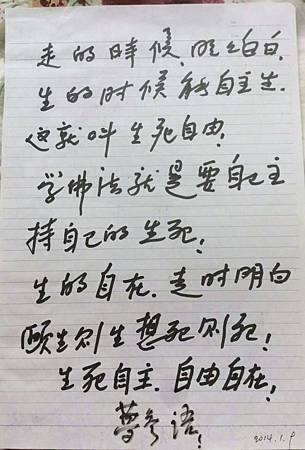 走的時候，明明白白，
生的时候能自主生，
这就叫生死自由，
学佛法就是要自己主
持自己的生死！
生的自在，走时明白
願生则生想死则死！
生死自主，自由自在！
梦参语！
2014.1.9